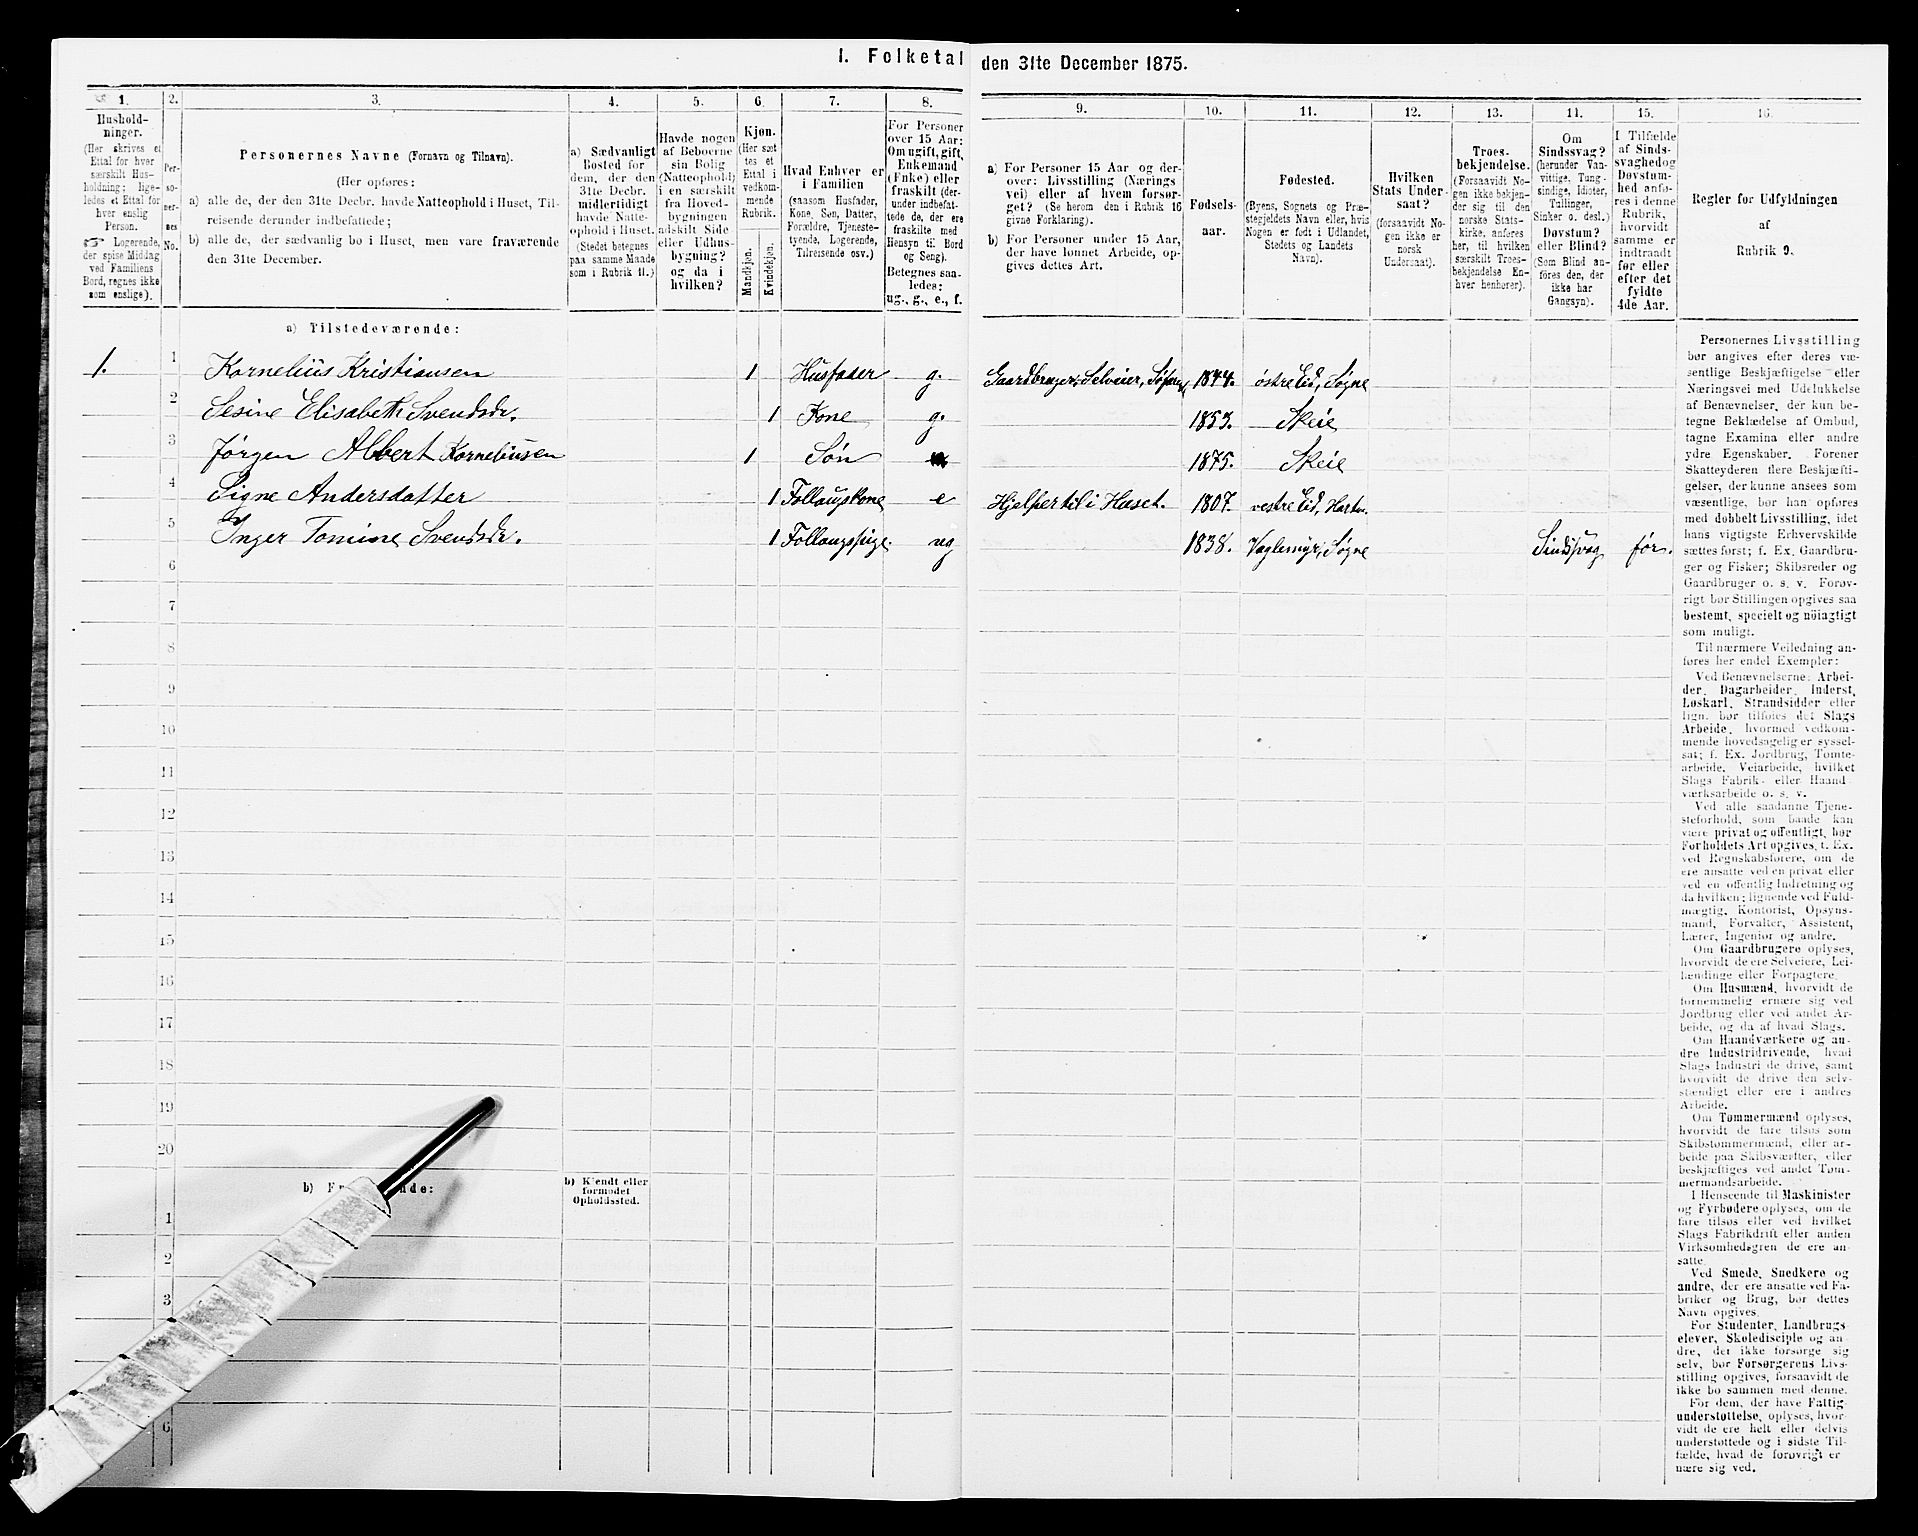 I. Folketal den 31te December 1875.
1.
Hushold-
ninger.
(Her skrives et
Ettal for hver
særskilt Hus-
holdning; lige-
ledes et Ettal for
hver enslig
Person.
☞ Logerende,
der spise Middag
ved Familiens
Bord, regnes ikke
som enslige).
2.
Per-
so-
ner-
nes
No.
3.
Personernes Navne (Fornavn og Tilnavn).
(Her opføres:
a) alle de, der den 31te Decbr. havde Natteophold i Huset, Til-
reisende derunder indbefattede;
b) alle de, der sædvanlig bo i Huset, men vare fraværende
den 31te December.
4.
a) Sædvanligt
Bosted for
dem, der den
31te Decbr.
midlertidigt
havde Natte-
ophold i Huset.
(Stedet betegnes
paa samme Maade
som i Rubrik 11.)
5.
Havde nogen
af Beboerne
sin Bolig
(Natteophold)
i en særskilt
fra Hoved-
bygningen
adskilt Side
eller Udhus-
bygning?
og da i
hvilken?
6.
Kjøn.
(Her sæt-
tes et
Ettal i
vedkom-
mende
Rubrik.
Mandkjøn.
Kvindekjøn.
7.
Hvad Enhver er
i Familien
(saasom Husfader,
Kone, Søn, Datter,
Forældre, Tjeneste-
tyende, Logerende,
Tilreisende osv.)
8.
For Personer
over 15 Aar:
Om ugift, gift,
Enkemand
(Enke) eller
fraskilt (der-
under indbefat-
tede de, der ere
fraskilte med
Hensyn til Bord
og Seng).
Betegnes saa-
ledes:
ug., g., e., f.
9.
a) For Personer 15 Aar og der-
over: Livsstilling (Nærings
vei) eller af hvem forsør-
get? (Se herom den i Rubrik 16
givne Forklaring).
b) For Personer under 15 Aar,
der have lønnet Arbeide, op-
gives dettes Art.
10.
Fødsels-
aar.
11.
Fødested.
(Byens, Sognets og Præ-
stegjeldets Navn eller, hvis
Nogen er født i Udlandet,
Stedets og Landets
Navn).
12.
Hvilken
Stats Under-
saat?
(forsaavidt No-
gen ikke er
norsk
Undersaat).
13.
Troes-
bekjendelse.
(Forsaavidt No-
gen ikke bekjen-
der sig til den
norske Stats-
kirke, anføres
her, til hvilken
særskilt Troes-
bekjendelse En-
hver henhører).
14.
Om
Sindssvag?
(herunder Van-
vittige, Tung-
sindige, Idioter,
Tullinger,
Sinker o. desl.)
Døvstum?
eller Blind?
(Som Blind an-
føres den, der
ikke har
Gangsyn).
15.
I Tilfælde
af Sinds-
svaghed og
Døvstum-
hed anfø-
res i denne
Rubrik,
hvorvidt
samme er
indtraadt
før eller
efter det
fyldte
4de Aar.
16.
Regler for Udfyldningen
af
Rubrik 9.
a) Tilstedeværende:
1. 1 Kornelius Kristiansen 1 Husfader g. Gaardbruger, Selveier, 1844. østre Eid, Søgne
2 Sesine Elisabeth Svendsdr. 1 Kone g. 1853. Skeie
3 Jørgen Albert Korneliusen 1 Søn 1875. Skeie
4 Signe Andersdatter 1 Follaugskone e Hjelper til i Huset. 1807. vestre Eid,
5 Inger Tomine Svendsdr. 1 Follaugspige ug 1838. Vaglemyr, Søgne Sindssvag før.
6
7
8
9
10
11
12
13
14
15
16
17
18
19
20
b)
b) Kjendt eller
formodet
Opholdssted.
1
2
3
6
Personernes Livsstilling
bør angives efter deres væ-
sentlige Beskjæftigelse eller
Næringsvei med Udelukkelse
af Benævnelser, der kun be-
tegne Beklædelse af Ombud,
tagne Examina eller andre
ydre Egenskaber. Forener
Skatteyderen flere Beskjæfti-
gelser, der kunne ansees som
væsentlige, bør han opføres
med dobbelt Livsstilling, idet
hans vigtigste Erhvervskilde
sættes først; f. Ex. Gaardbru-
ger og Fisker; Skibsreder og
Gaardbruger o. s. v. Forøv-
rigt bør Stillingen opgives saa
bestemt, specielt og nöiagtigt
som muligt.
Til nærmere Veiledning an-
føres her endel Exempler:
Ved Benævnelserne: Arbei-
der, Dagarbeider, Inderst,
Løskarl, Strandsidder eller
lign. bør tilføies det Slags
Arbeide, hvormed vedkom-
mende hovedsagelig er syssel-
sat; f. Ex. Jordbrug, Tomte-
arbeide, Veiarbeide, hvilket
Slags Fabrik- eller Haand-
værksarbeide o. s. v.
Ved alle saadanne Tjene-
steforhold, som baade kan
være privat og offentligt, bør
Forholdets Art opgives, t. Ex.
ved Regnskabsførere, om de
ere ansatte ved en privat eller
ved en offentlig Indretning og
da hvilken; lignende ved Fuld-
mægtig, Kontorist, Opsyns-
mand, Forvalter, Assistent,
Lærer, Ingeniør og andre.
Om Gaardbrugere oplyses,
hvorvidt de ere Selveiere, Lei-
lændinge eller Forpagtere.
Om Husmænd, hvorvidt de
fornemmelig ernære sig ved
Jordbrug eller ved andet Ar-
beide, og da af hvad Slags.
Om Haandværkere og an-
dre Industridrivende, hvad
Slags Industri de drive, samt
hvorvidt de drive den selv-
stændigt eller ere i andres
Arbeide.
Om Tømmermænd oplyses,
hvorvidt de fare tilsøs som
Skibstømmermænd, eller ar-
beide paa Skibsværfter, eller
beskjæftiges ved andet Tøm-
mermandsarbeide.
I Henseende til Maskinister
og Fyrbødere oplyses, om de
fare tilsøs eller ved hvilket
Slags Fabrikdrift eller anden
Virksomhedsgren de ere an-
satte.
Ved Smede, Snedkere og
andre, der ere ansatte ved Fa-
briker og Brug, bør dettes
Navn opgives.
For Studenter, Landbrugs-
elever, Skoledisciple og an-
dre, der ikke forsørge sig
selv, bør Forsørgerens Livs-
stilling opgives, forsaavidt de
ikke bo sammen med denne.
For dem, der have Fattig-
understøttelse, oplyses, hvor-
vidt de ere helt eller delvis
understøttede og i sidste Til-
fælde, hvad de forøvrigt er-
nære sig ved.